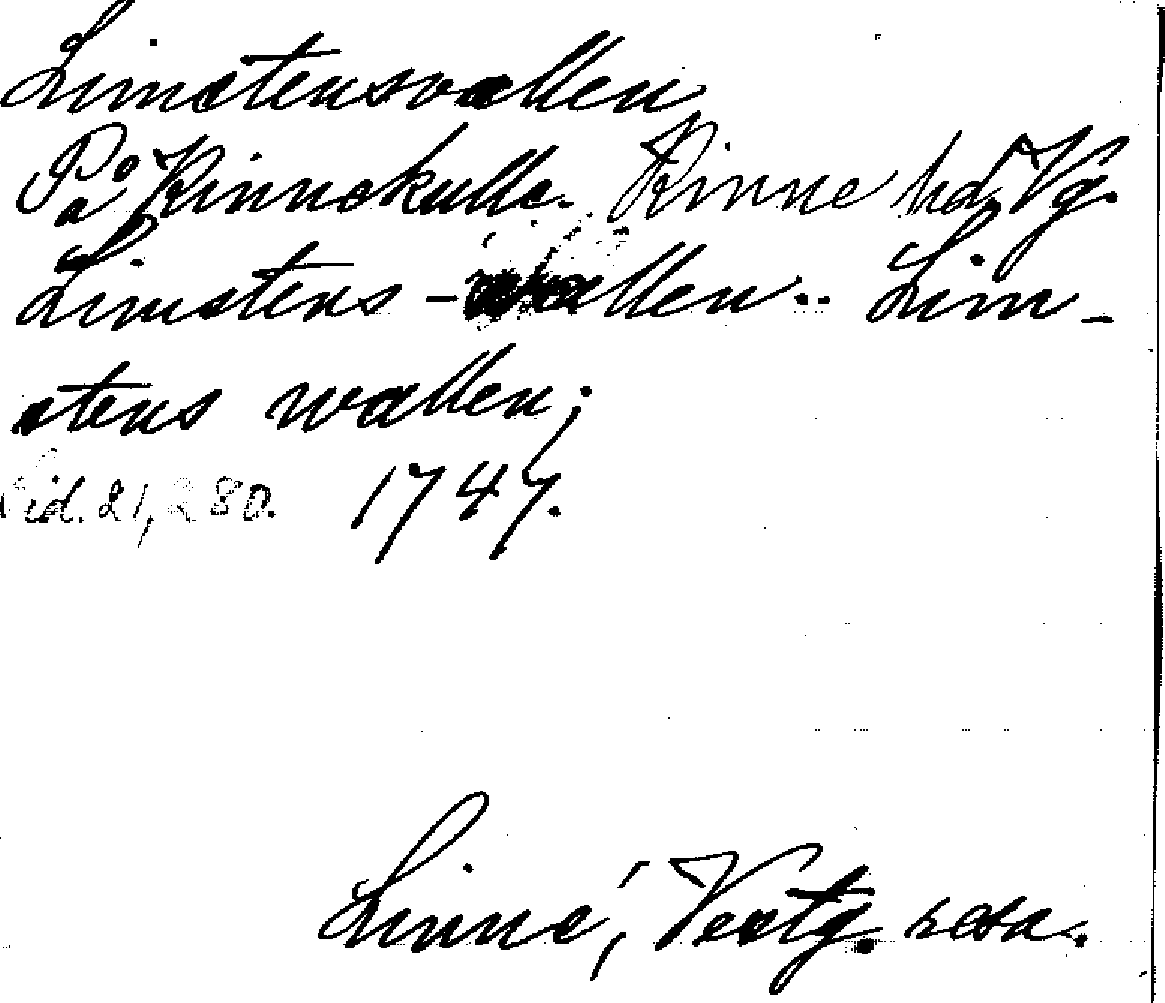 Limstensvallen
På Kinnekulle. Kinne hd, Vg.
Limstens-wallen.. Lim-
stens wallen;
Sid. 21, 280. 1747.
Linné, Vestg. resa.